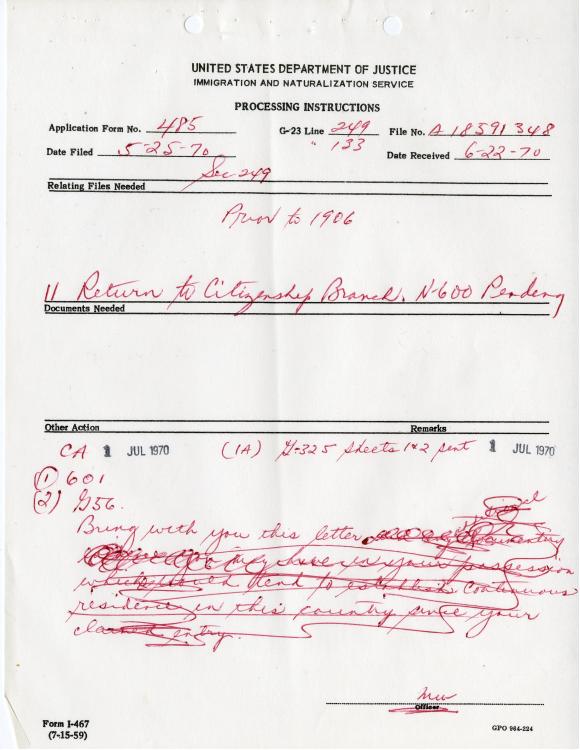 UNITED STATES DEPARTMENT OF JUSTICE
IMMIGRATION AND NATURALIZATION SERVICE
PROCESSING INSTRUCTIONS
Application Form No. 485 G-23 Line 249 File No. A 18591 348
" 133
Date Filed 5-25-70 Date Received 6-22-70
Sec 249
Relating Files Needed
Prior to 1906
11 Return to Citizenship Branch. N-600 Pending
Documents Needed
Other Action Remarks
CA 1 JUL 1970 (1A) G-325 sheets 1+2 sent 1 JUL 1970
(1) 601
(2) G56.
Bring with you this letter documentary
may have in your possession
which tend to establish continuous
residence in this country since your
claimed entry.
mw
Officer
Form I-467
(7-15-59)
GPO 964-224